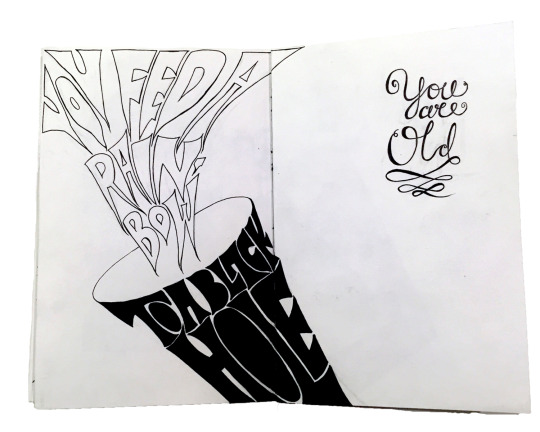 YOU FEED A
RAiN
BOW
TO A BLACK
HOLE
You
are
Old